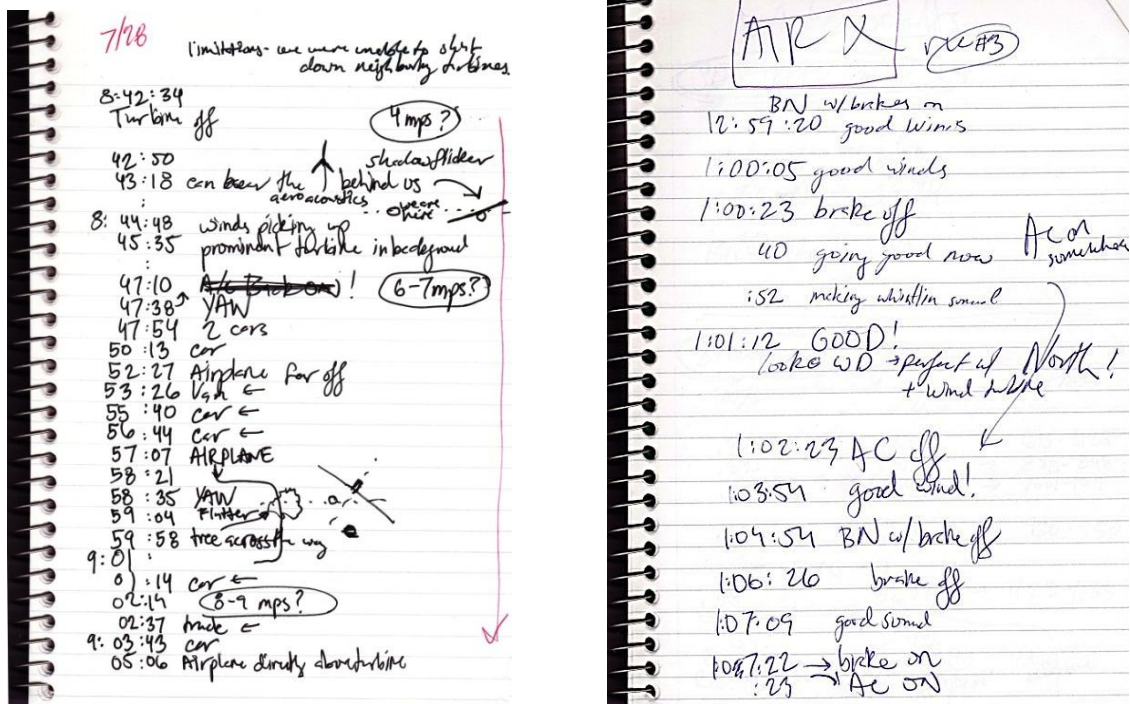 7/28
limitations - we were unable to shut
down neighboring turbines.
8:42:34
Turbine off
4 mps?
42:50
shadow flicker
43:18 can hear the behind us
aeroacoustics
we are
here
:
8: 44:48 winds picking up
45:35 prominant turbine in background
:
47:10 !
6-7 mps?
47:38 YAW
47:54 2 cars
50:13 car
52:27 Airplane far off
53:26 Van ←
55:40 car ←
56:44 car ←
57:07 AIRPLANE
58:21
58:35 YAW
59:04 Flutter
59:58 tree across the way
9:01 :
01:14 car ←
02:14 8-9 mps?
02:37 truck ←
9: 03:43 car
05:06 Airplane directly above turbine
AIR X
#3
BN w/ brakes on
12:59:20 good winds
1:00:05 good winds
1:00:23 brake off
40 going good now
AC on
somewhere
:52 making whistlin sound
1:01:12 GOOD!
looks WD → perfect w/ North!
+ wind
1:02:23 AC off
1:03:54 good wind!
1:04:54 BN w/ brake off
1:06:26 brake off
1:07:09 good sound
1:07:22 → brake on
:23 → AC ON